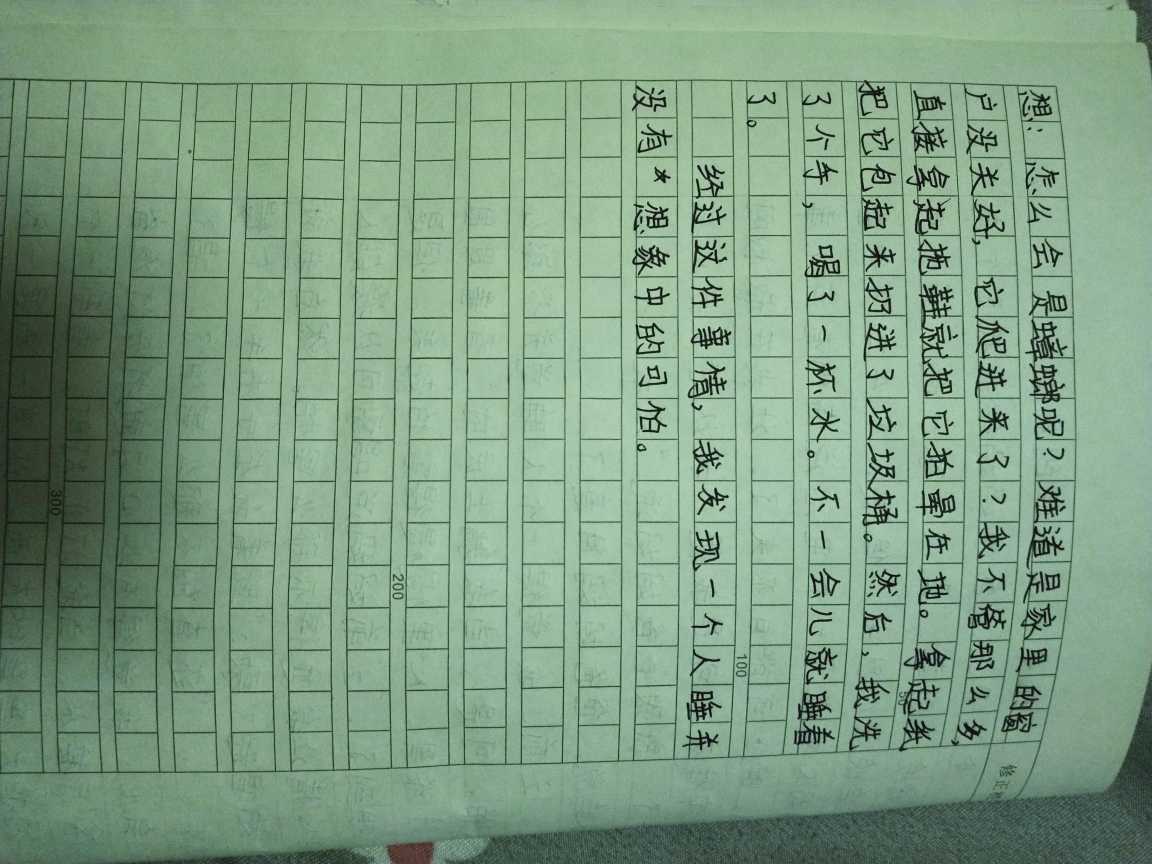 想：怎么会是蟑螂呢？难道是家里的窗
户没关好，它爬进来了？我不管那么多，
直接拿起拖鞋就把它拍晕在地。拿起纸
把它包起来扔进了垃圾桶。然后，我洗
了个手，喝了一杯水。不一会儿就睡着
了。
经过这件事情，我发现一个人睡并
没有想象中的可怕。
100
200
300
修正